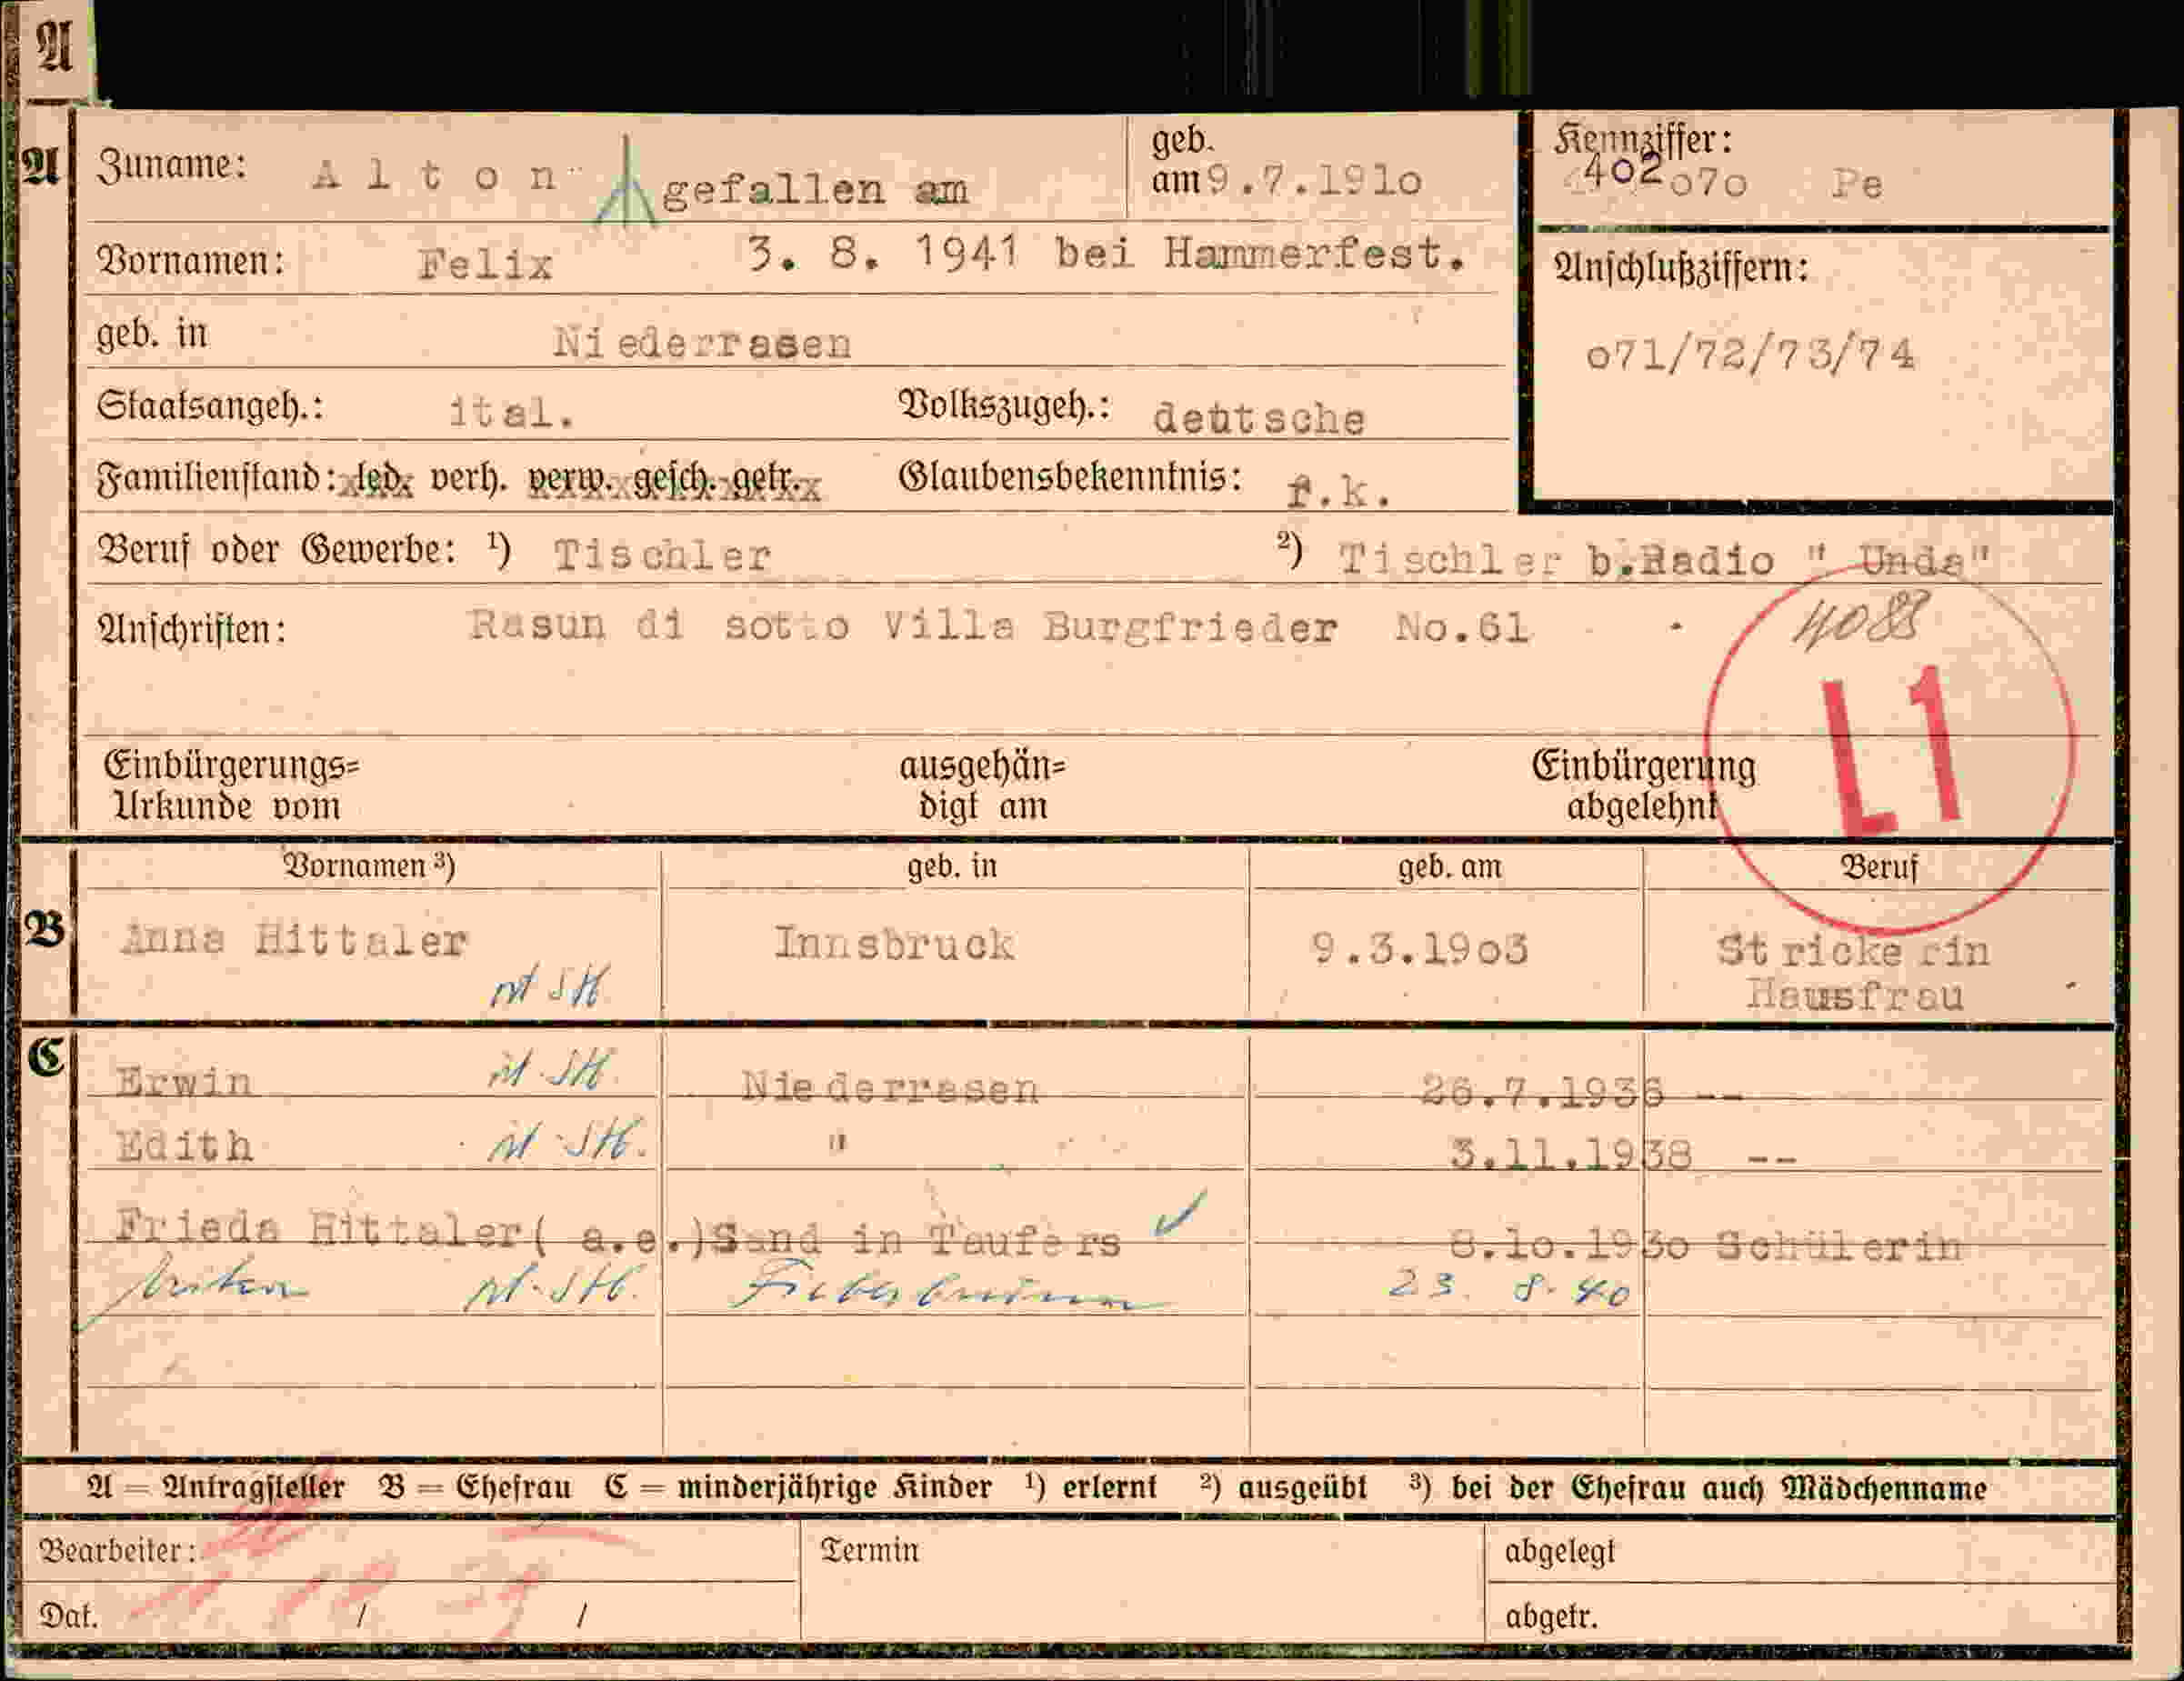 A
A
Zuname: Alton gefallen am geb. am 9.7.191o Kennziffer: 402o7o Pe
Vornamen: Felix 3. 8. 1941 bei Hammerfest. Anschlußziffern:
geb. in Niederrasen o71/72/73/74
Staatsangeh.: ital. Volkszugeh.: deutsche
Familienstand: led. verh. verw. gesch. getr. Glaubensbekenntnis: r.k.
Beruf oder Gewerbe: ¹) Tischler ²) Tischler b.Radio " Unda"
Anschriften: Rasun di sotto Villa Burgfrieder No.61 4088
L1
Einbürgerungs= ausgehän= Einbürgerung
Urkunde vom digt am abgelehnt
Vornamen ³) geb. in geb. am Beruf
B Anna Hittaler Innsbruck 9.3.19o3 Strickerin
Hausfrau
C
Erwin Niederrasen 26.7.1936 --
Edith " 3.11.1938 --
Frieda Hittaler( a.e.)Sand in Taufers 8.1o.193o Schülerin
Fieberbrunn 23. 8. 40
A = Antragsteller B = Ehefrau C = minderjährige Kinder ¹) erlernt ²) ausgeübt ³) bei der Ehefrau auch Mädchenname
Bearbeiter: Termin abgelegt
Dat. / / abgetr.